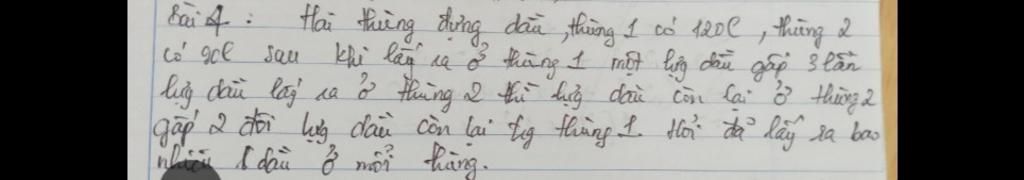 Bài 4 : Hai thùng đựng dầu, thùng 1 có 120l, thùng 2
có 90l sau khi lấy ra ở thùng 1 một lượg dầu gấp 3 lần
lượg dầu lấy ra ở thùng 2 thì lượg dầu còn lại ở thùng 2
gấp 2 đôi lượg dầu còn lại trg thùng 1. Hỏi đã lấy ra bao
nhiêu l dầu ở mỗi thùng.